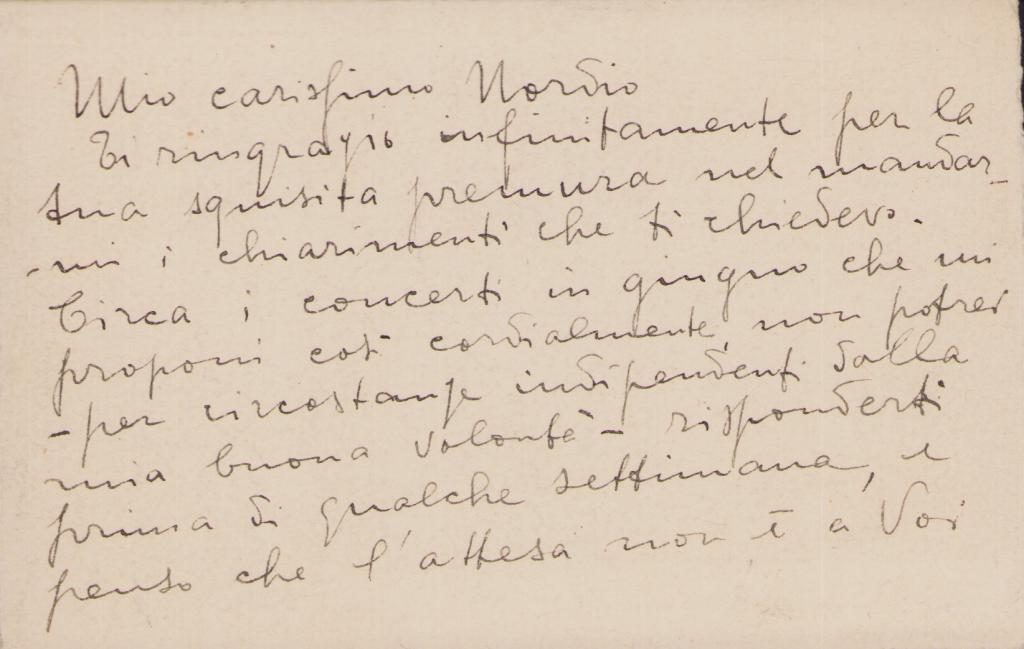 Mio carissimo Nordio
Ti ringrazio infinitamente per la
tua squisita premura nel mandar-
-mi i chiarimenti che ti chiedevo.
Circa i concerti in giugno che mi
proponi così cordialmente, non potrei
- per circostanze indipendenti dalla
mia buona volontà - risponderti
prima di qualche settimana, e
penso che l'attesa non è a Voi